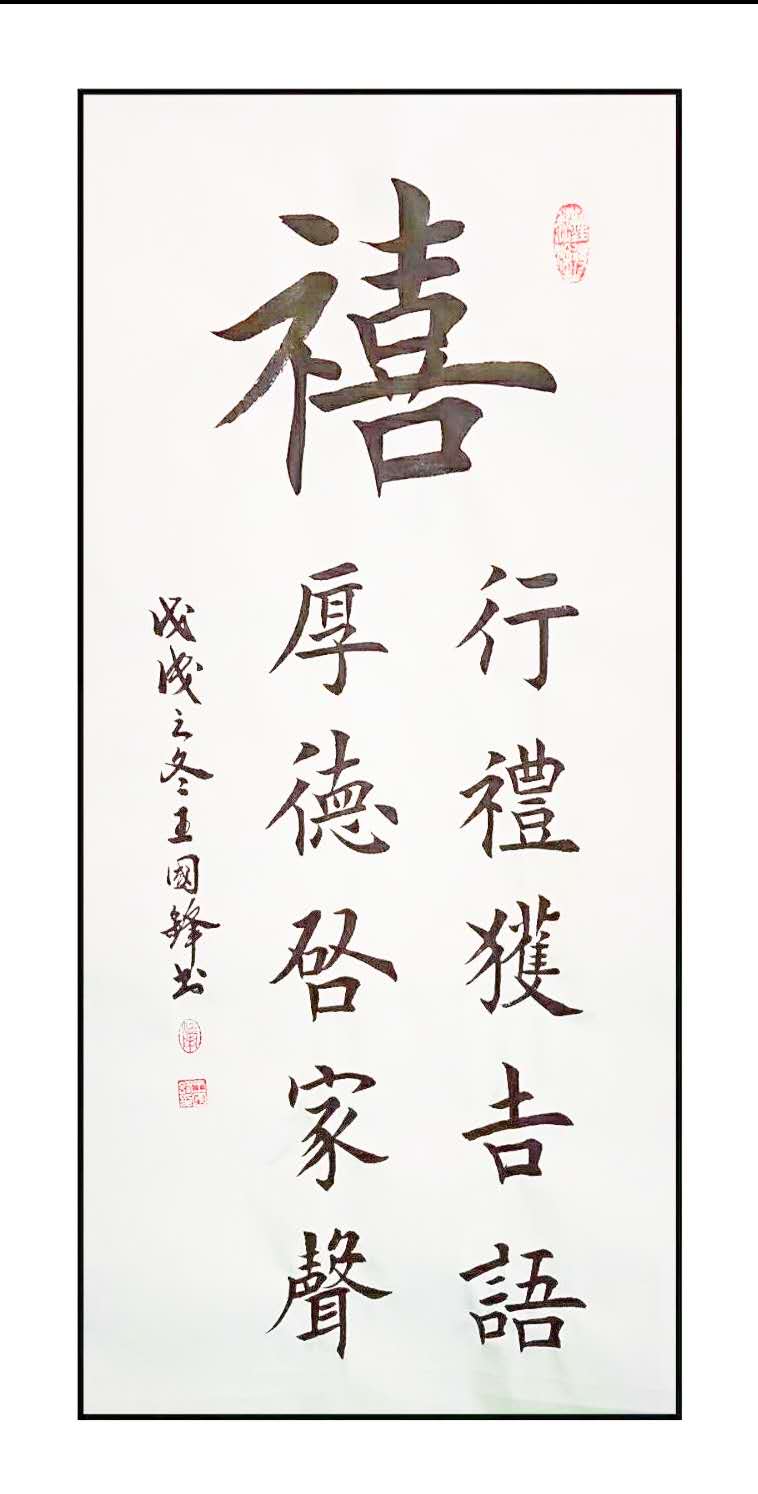 禧
行禮獲吉語
厚德啓家聲
戊戌之冬王國鋒书